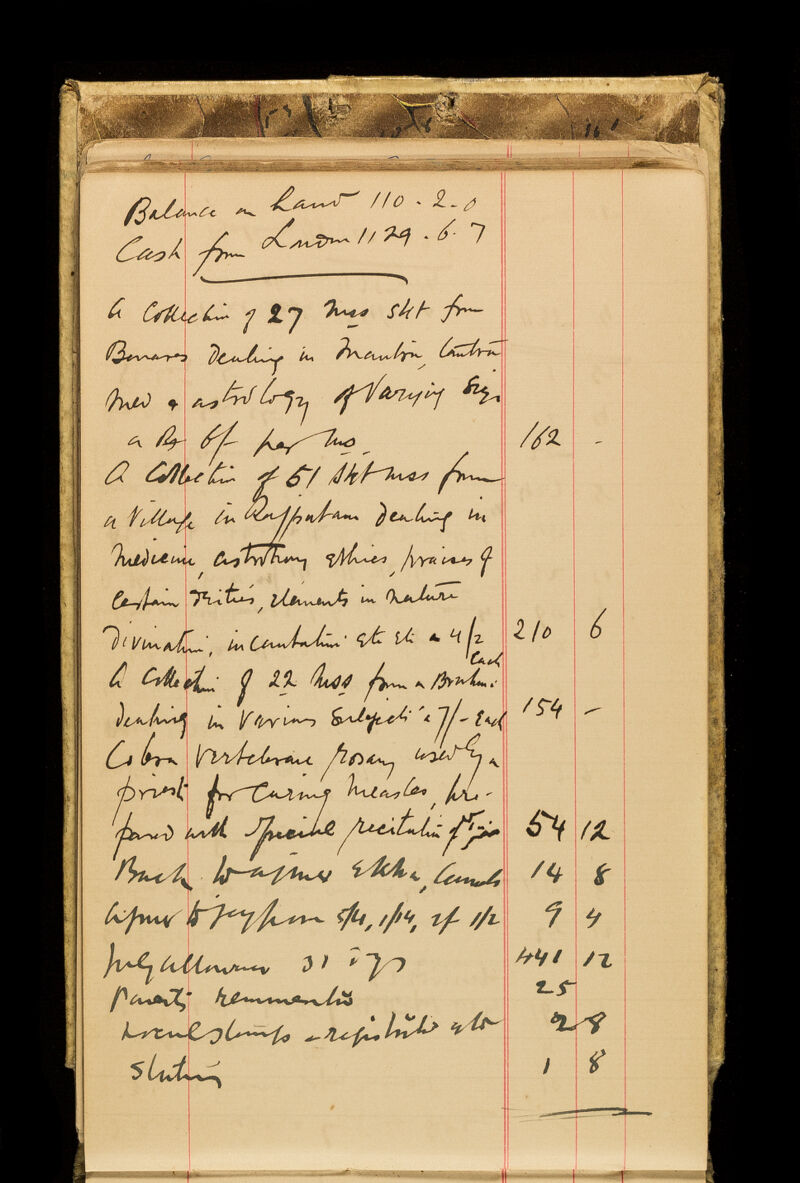 Balance on hand 110 - 2 - 0
Cash from London 1129 - 6 - 7
A Collection of 27 mss Skt from
Benares dealing in Mantra, tantra
med & astrology of Varying Size
a Rs 6/- per ms 162 -
A Collection of 51 Skt mss from
a Village in Rajputana dealing in
medicine, astronomy ethics, praises of
Certain deities, elements in nature
divination, incantation etc etc a 4/2 each 210 6
A Collection of 22 mss from a Brahmin
dealing in various Subjects a 7/- each 154 -
Cobra Vertebrae rosary used by a
priest for Curing measles, pre-
pared with special recitation 54 12
Back to Ajmer Ekka, Camels 14 8
Ajmer to Jeypore 5/4, 1/14, 1/2 9 4
July allowance 31 dys 441 12
remuneration 25
stamps & registration 2 8
1 8